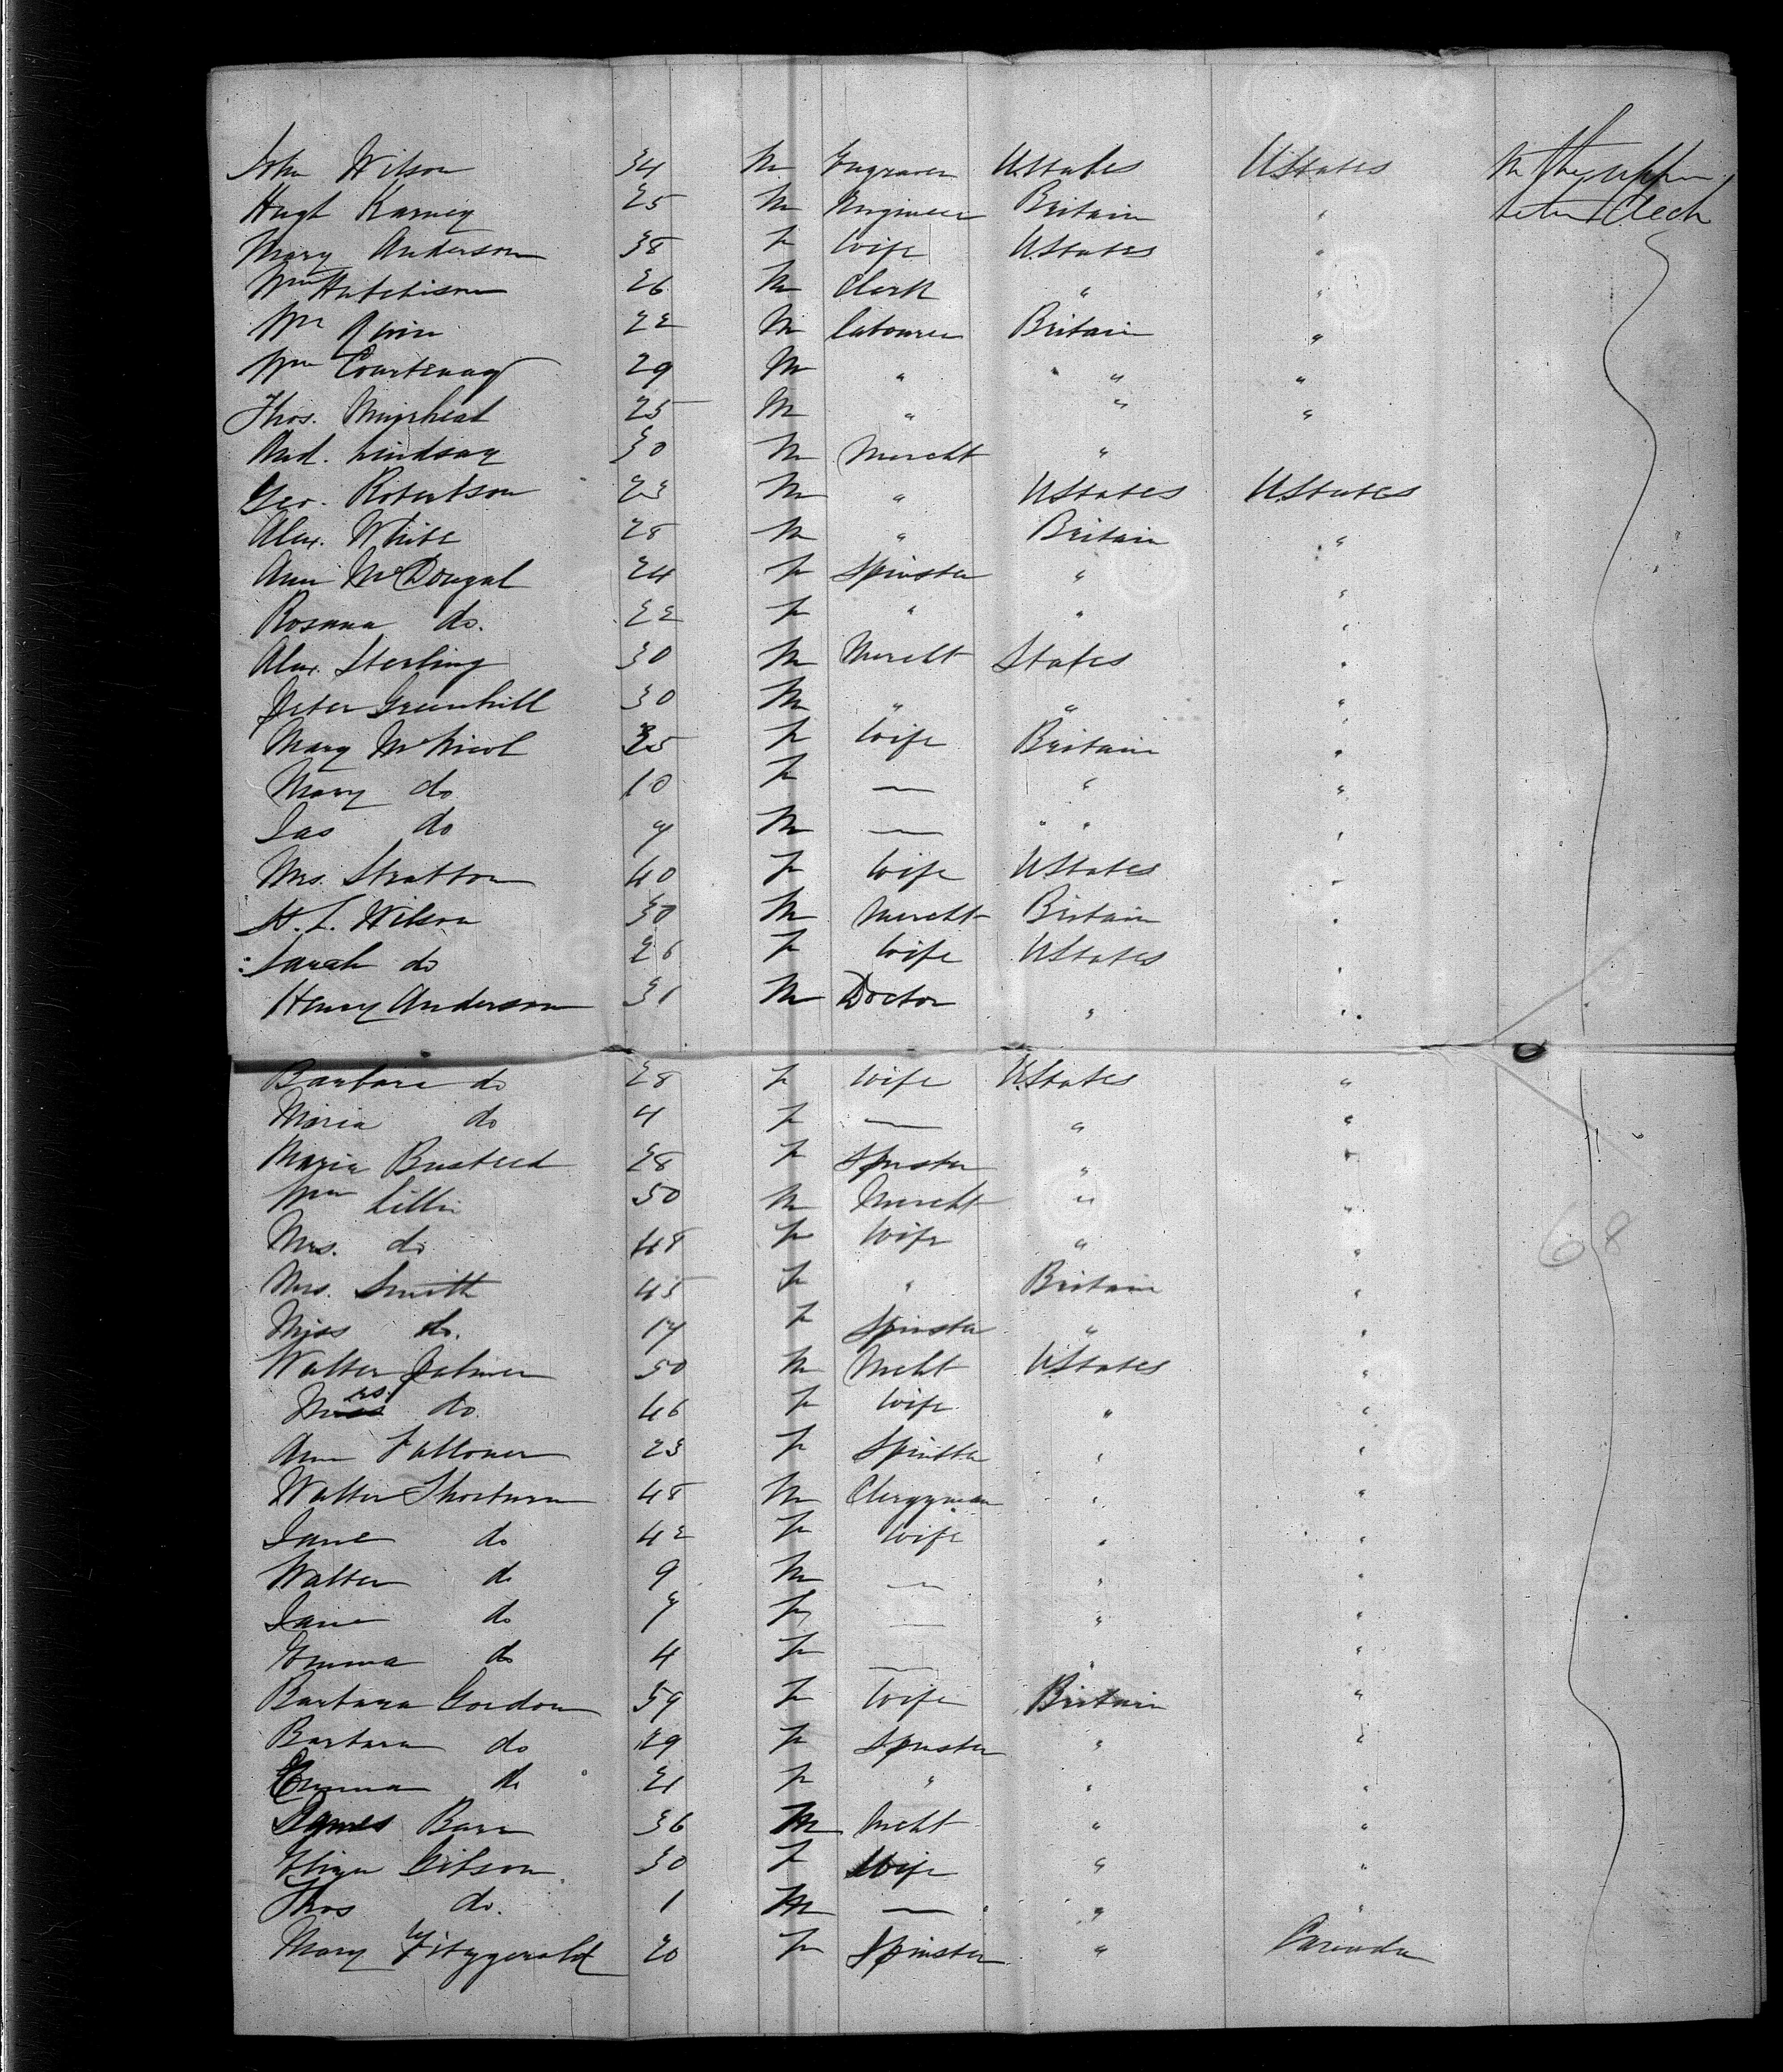 John Wilson 34 M Engraver UStates UStates In the upper
Hugh Karney 25 M Engineer Britain " betw Deck
Mary Anderson 38 F Wife UStates "
Wm Hutchison 26 M Clerk " "
Wm Quin 22 M labourer Britain "
Wm Courtenay 29 M " " "
Thos. Muirhead 25 M " " "
And. Lindsay 30 M Mercht "
Geo. Robertson 23 M " UStates UStates
Alex. White 28 M " Britain "
Ann McDougal 24 F Spinster " "
Rosanna do. 22 F " " "
Alex. Sterling 30 M Mercht States "
Peter Greenhill 30 M " " "
Mary McNicol 35 F Wife Britain "
Mary do 10 F — " "
Jas do 7 M — " " "
Mrs. Stratton 40 F Wife UStates "
H. L. Wilson 30 M Mercht Britain "
Sarah do 26 F Wife UStates "
Henry Anderson 31 M Doctor " "
Barbara do 28 F Wife UStates "
Maria do 4 F — " "
Maria Busteed 28 F Spinster " "
Wm Lillie 50 M Mercht " "
Mrs. do 48 F Wife " " 68
Mrs. Smith 45 F " Britain "
Miss do. 17 F Spinster " "
Walter Palmer 50 M Mcht UStates "
Mrs. do. 46 F Wife " "
Ann Falloner 23 F Spinster " "
Walter Thorburn 48 M Clergyman " "
Jane do 42 F Wife " "
Walter do 9 M — " "
Jane do 7 F — " "
Emma do 4 F — " "
Barbara Gordon 59 F Wife Britain "
Barbara do 29 F Spinster " "
Emma do 21 F " " "
James Barr 36 M Mcht " "
Eliza Gibson 30 F Wife " "
Thos do. 1 M — " "
Mary Fitzgerald 20 F Spinster " Canada